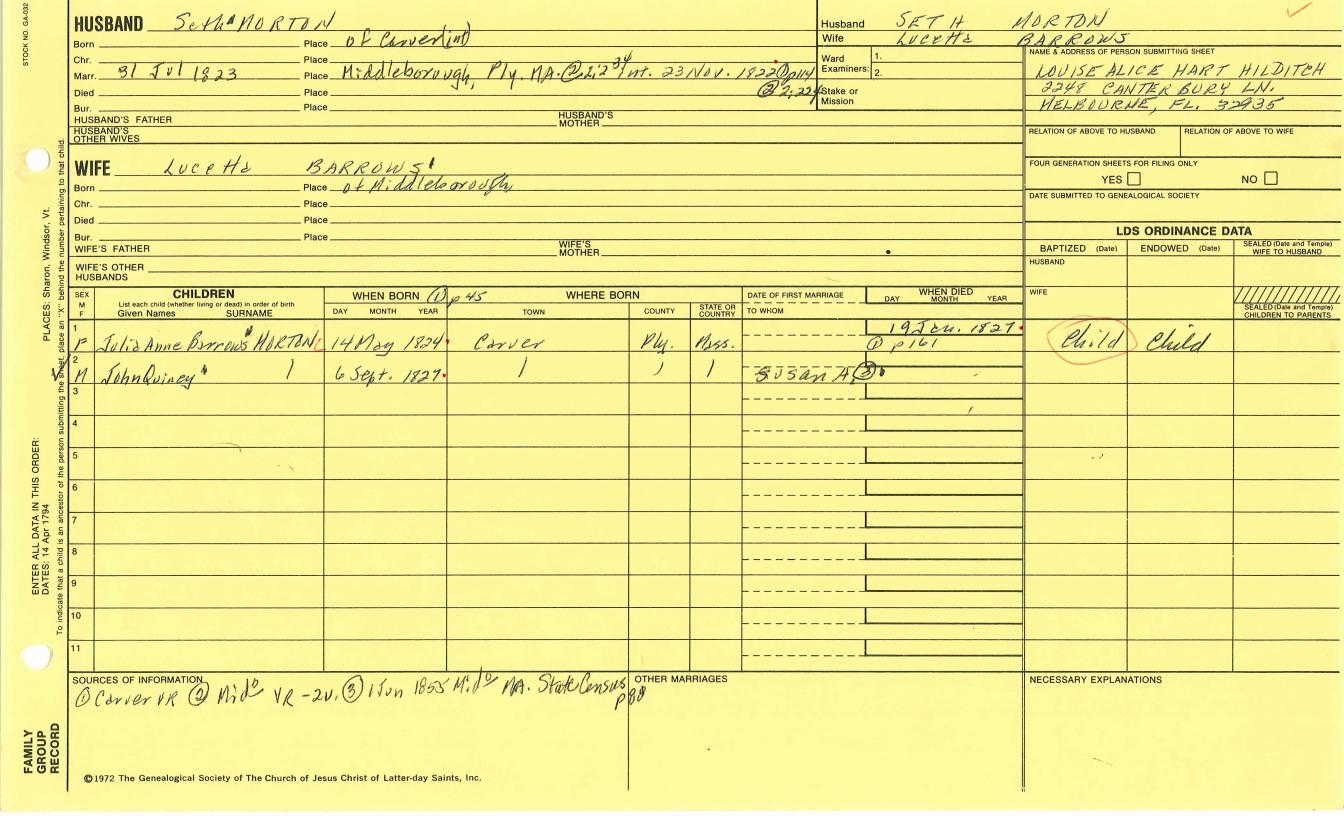 STOCK NO. GA-032
HUSBAND Seth MORTON
Husband SETH MORTON
Born Place of Carver(int)
Wife Lucetta BARROWS
Chr. Place
Ward Examiners: 1. 2.
NAME & ADDRESS OF PERSON SUBMITTING SHEET
Marr. 31 Jul 1823 Place Middleborough, Ply. MA. int. 23 Nov. 1822 ① p114
LOUISE ALICE HART HILDITCH
Died Place ② 2:224
2248 CANTERBURY LN.
Bur. Place
Stake or Mission
MELBOURNE, FL. 32935
HUSBAND'S FATHER
HUSBAND'S MOTHER
HUSBAND'S OTHER WIVES
RELATION OF ABOVE TO HUSBAND
RELATION OF ABOVE TO WIFE
WIFE Lucetta BARROWS
FOUR GENERATION SHEETS FOR FILING ONLY
Born Place of Middleborough
YES NO
Chr. Place
DATE SUBMITTED TO GENEALOGICAL SOCIETY
Died Place
Bur. Place
LDS ORDINANCE DATA
WIFE'S FATHER
WIFE'S MOTHER
BAPTIZED (Date) ENDOWED (Date) SEALED (Date and Temple) WIFE TO HUSBAND
WIFE'S OTHER HUSBANDS
HUSBAND
SEX M F
CHILDREN
List each child (whether living or dead) in order of birth
Given Names SURNAME
WHEN BORN ① p45
DAY MONTH YEAR
WHERE BORN
TOWN COUNTY STATE OR COUNTRY
DATE OF FIRST MARRIAGE
TO WHOM
WHEN DIED
DAY MONTH YEAR
WIFE
SEALED (Date and Temple) CHILDREN TO PARENTS
1 F Julia Anne Barrows MORTON 14 May 1824 Carver Ply. Mass. 19 Jan. 1827 ① p161 Child Child
2 M John Quincy 6 Sept. 1827 Susan A. ③
3
4
5
6
7
8
9
10
11
SOURCES OF INFORMATION
① Carver VR ② Mid° VR -2v. ③ 1 Jun 1855 Mid° MA. State Census p80
OTHER MARRIAGES
NECESSARY EXPLANATIONS
©1972 The Genealogical Society of The Church of Jesus Christ of Latter-day Saints, Inc.
FAMILY GROUP RECORD
ENTER ALL DATA IN THIS ORDER:
DATES: 14 Apr 1794
PLACES: Sharon, Windsor, Vt.
To indicate that a child is an ancestor of the person submitting the sheet, place an "X" behind the number pertaining to that child.